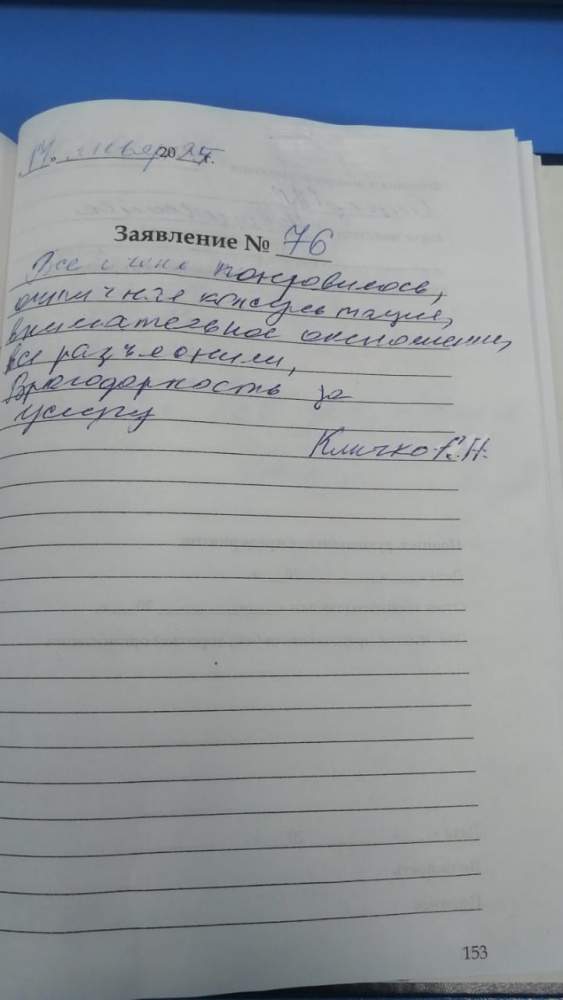 17. январ 2025г.
Заявление № 76
Все очень понравилось,
отличная консультация,
внимательное отношение,
все разъяснили,
Благодарность за
услугу
Кличко С.Н.
153